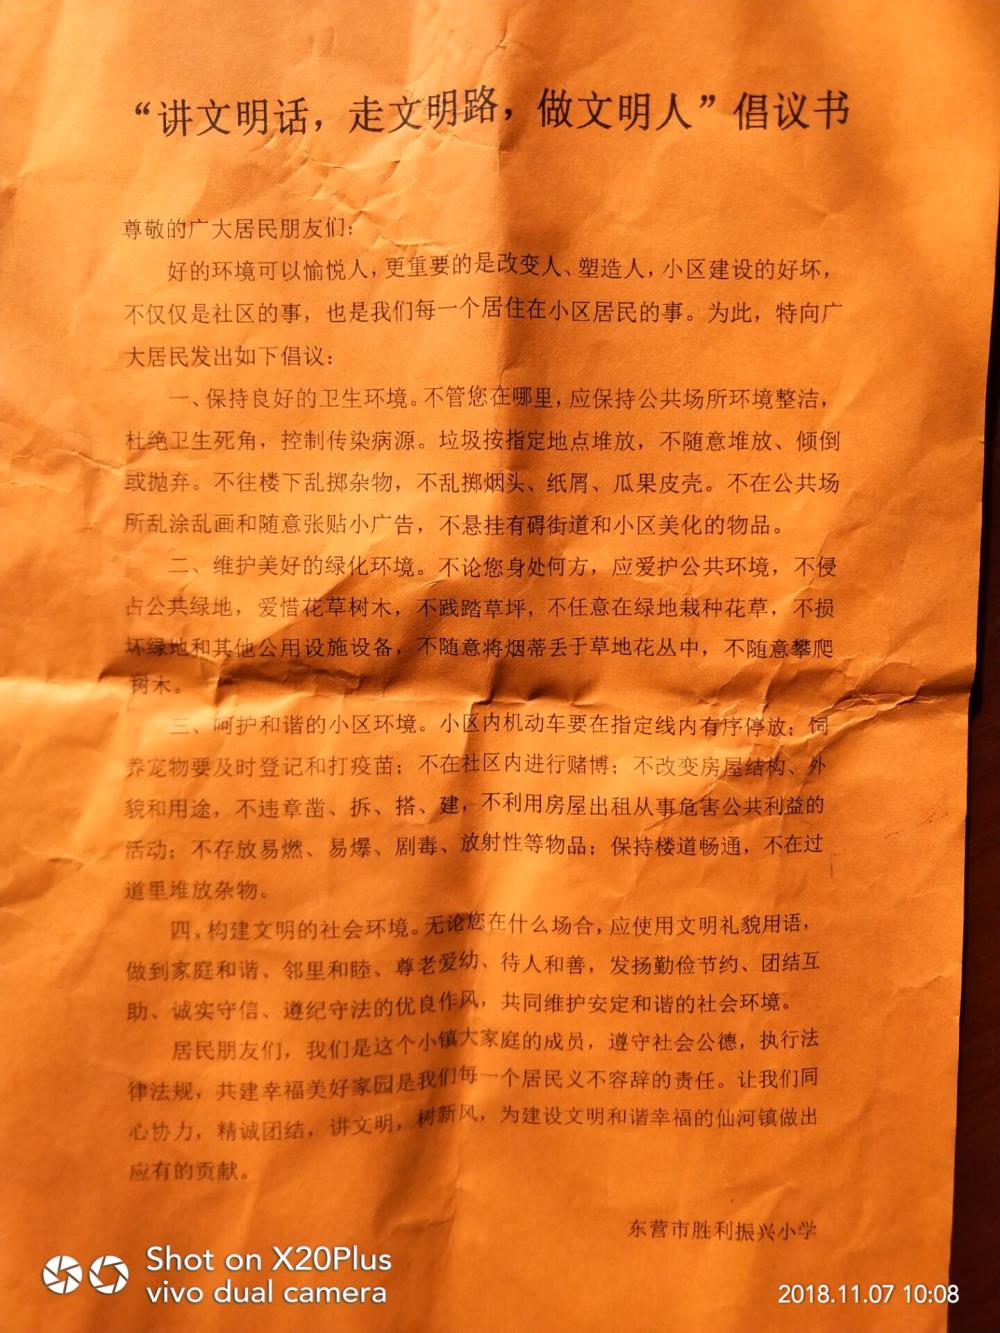 “讲文明话，走文明路，做文明人”倡议书
尊敬的广大居民朋友们：
好的环境可以愉悦人，更重要的是改变人、塑造人，小区建设的好坏，
不仅仅是社区的事，也是我们每一个居住在小区居民的事。为此，特向广
大居民发出如下倡议：
一、保持良好的卫生环境。不管您在哪里，应保持公共场所环境整洁，
杜绝卫生死角，控制传染病源。垃圾按指定地点堆放，不随意堆放、倾倒
或抛弃。不往楼下乱掷杂物，不乱掷烟头、纸屑、瓜果皮壳。不在公共场
所乱涂乱画和随意张贴小广告，不悬挂有碍街道和小区美化的物品。
二、维护美好的绿化环境。不论您身处何方，应爱护公共环境，不侵
占公共绿地，爱惜花草树木，不践踏草坪，不任意在绿地栽种花草，不损
坏绿地和其他公用设施设备，不随意将烟蒂丢于草地花丛中，不随意攀爬
树木。
三、呵护和谐的小区环境。小区内机动车要在指定线内有序停放；饲
养宠物要及时登记和打疫苗；不在社区内进行赌博；不改变房屋结构、外
貌和用途，不违章凿、拆、搭、建，不利用房屋出租从事危害公共利益的
活动；不存放易燃、易爆、剧毒、放射性等物品；保持楼道畅通，不在过
道里堆放杂物。
四、构建文明的社会环境。无论您在什么场合，应使用文明礼貌用语，
做到家庭和谐、邻里和睦、尊老爱幼、待人和善，发扬勤俭节约、团结互
助、诚实守信、遵纪守法的优良作风，共同维护安定和谐的社会环境。
居民朋友们，我们是这个小镇大家庭的成员，遵守社会公德，执行法
律法规，共建幸福美好家园是我们每一个居民义不容辞的责任。让我们同
心协力，精诚团结，讲文明，树新风，为建设文明和谐幸福的仙河镇做出
应有的贡献。
东营市胜利振兴小学
Shot on X20Plus
vivo dual camera
2018.11.07 10:08